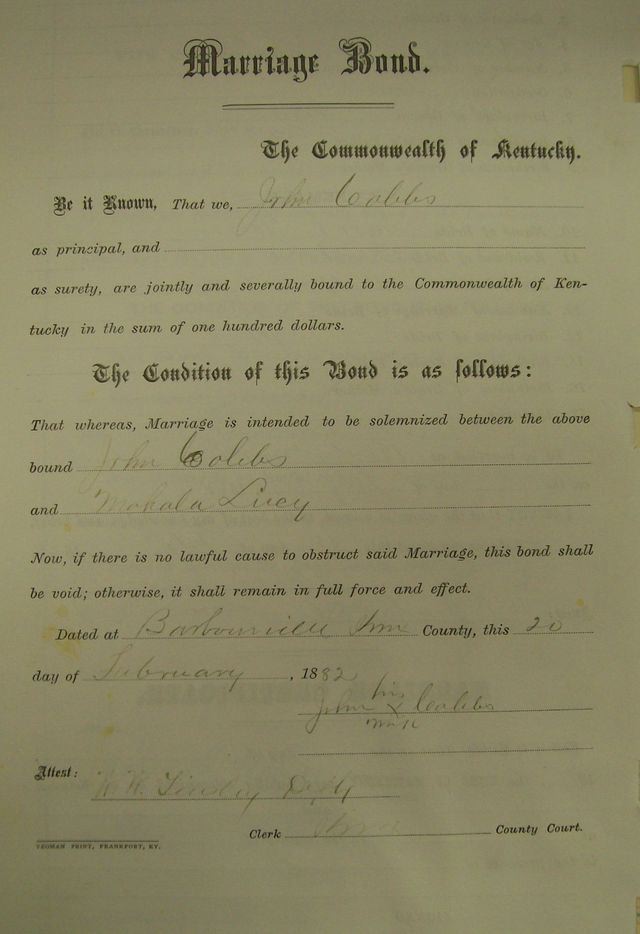 Marriage Bond.
The Commonwealth of Kentucky.
Be it Known, That we, John Cobbs
as principal, and
as surety, are jointly and severally bound to the Commonwealth of Ken-
tucky in the sum of one hundred dollars.
The Condition of this Bond is as follows:
That whereas, Marriage is intended to be solemnized between the above
bound John Cobbs
and Mahala Lucy
Now, if there is no lawful cause to obstruct said Marriage, this bond shall
be void; otherwise, it shall remain in full force and effect.
Dated at Barbourville Knox County, this 20
day of February, 1882
his
John X Cobbs
mark
Attest:
W. W. Tinsley Dpty
Clerk Knox County Court.
YEOMAN PRINT, FRANKFORT, KY.